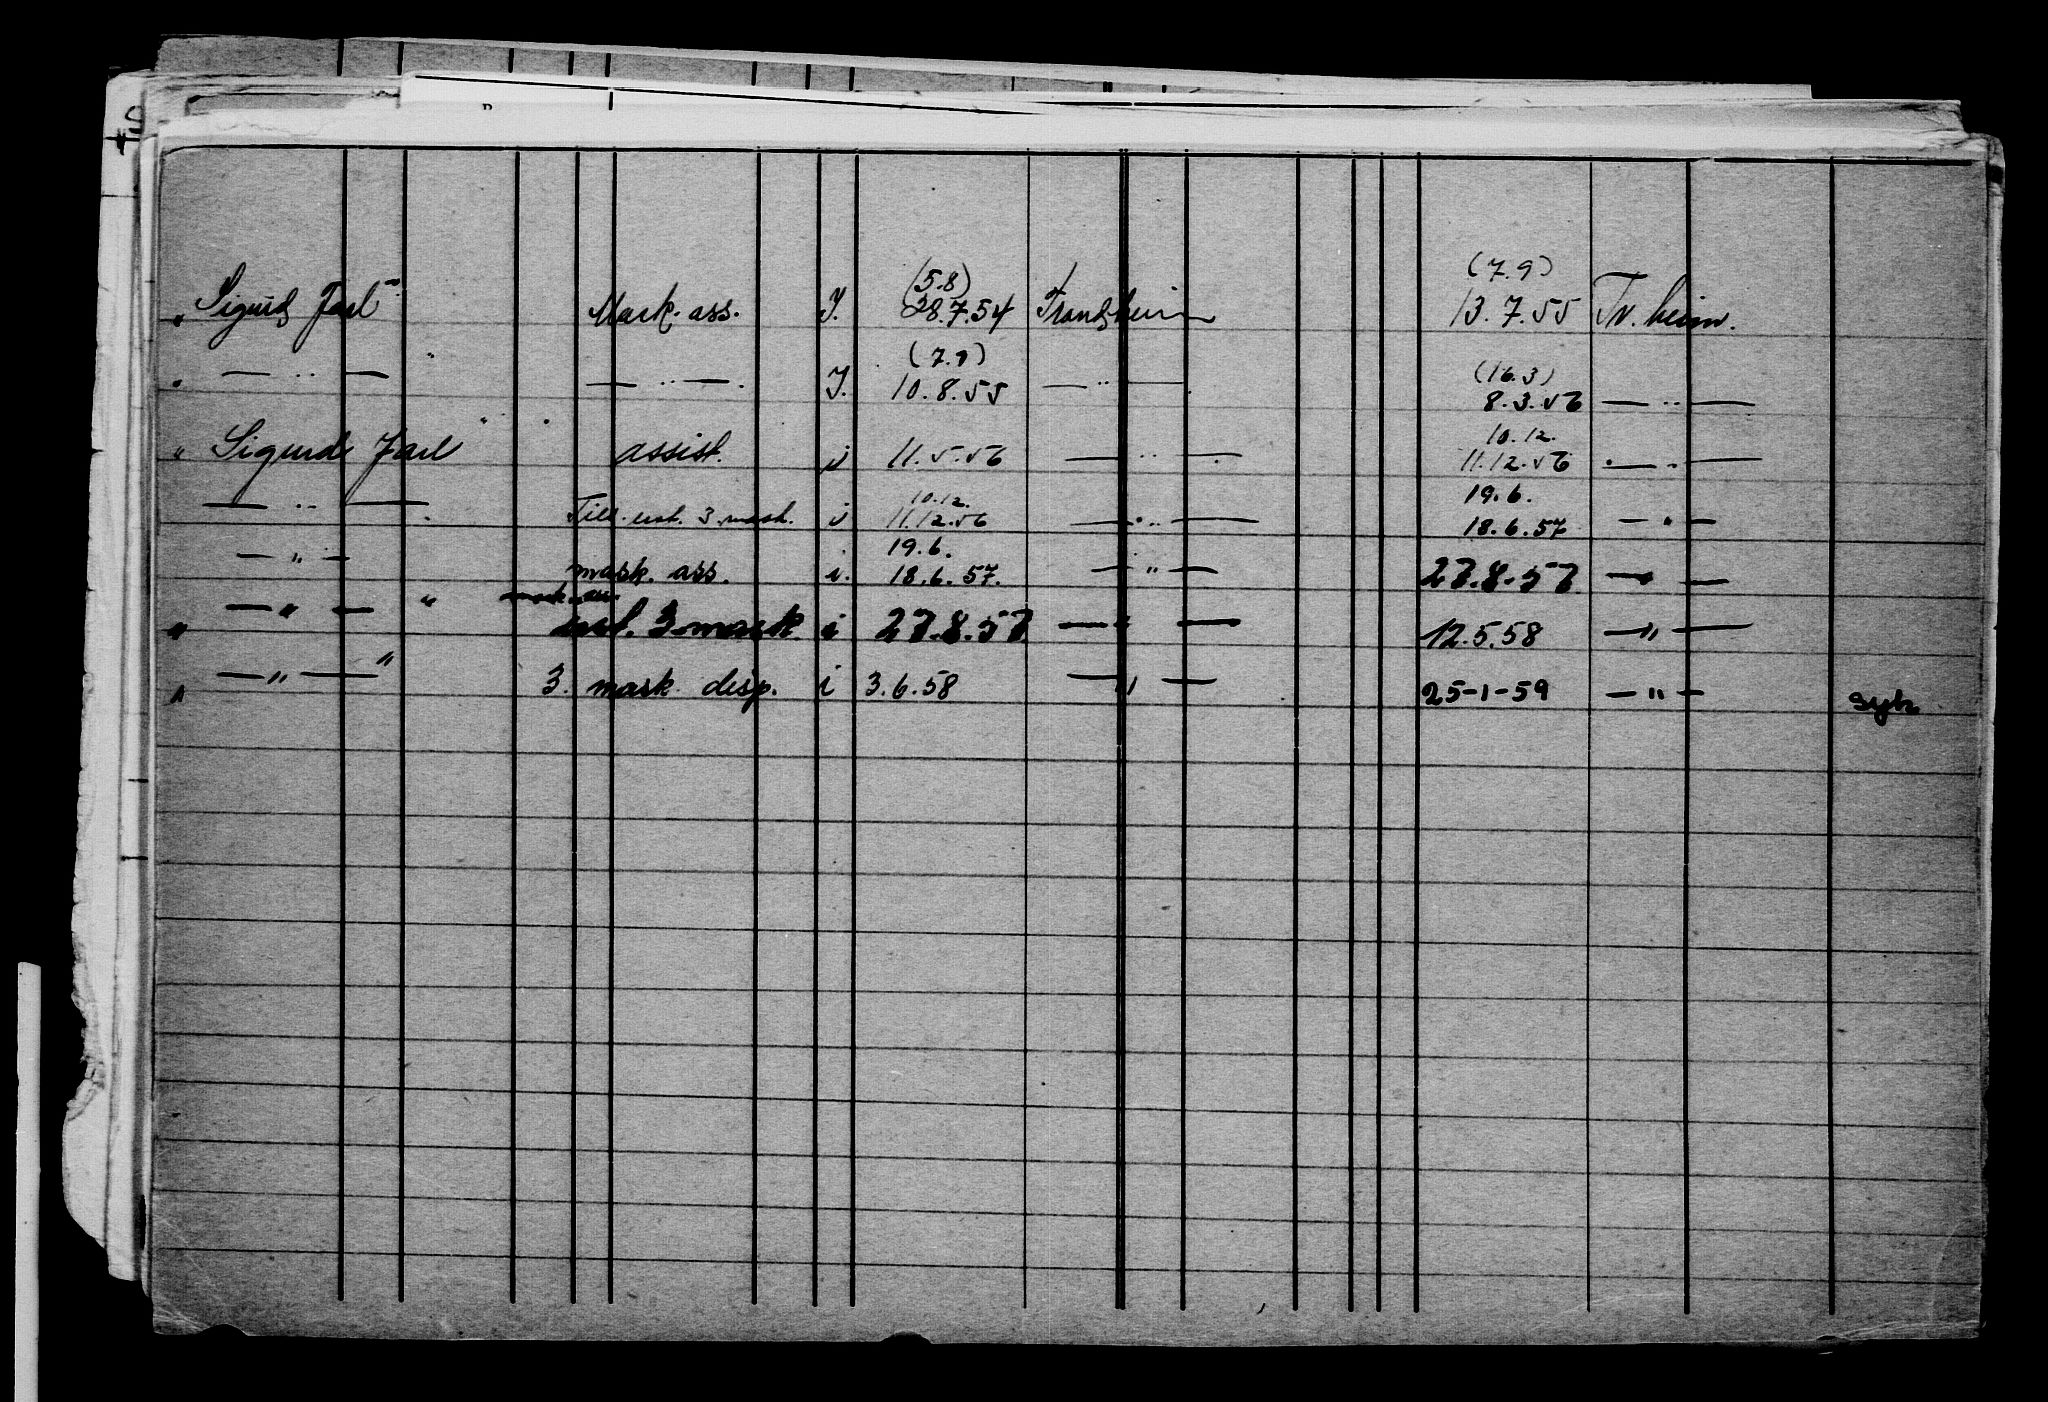 (5.8) (7.9)
" Sigurd Jarl" Mask. ass. I. 28.7.54 Trondheim 13.7.55 Tr. heim.
(7.9) (16.3)
" — " — " — " — . I. 10.8.55 — " — 8.3.56 — " —
10.12.
" Sigurd Jarl " assist. i 11.5.56 — " — 11.12.56 — " —
10.12. 19.6.
— " — 3. mask. i 11.12.56 — " — 18.6.57 — " —
19.6.
— " — mask. ass. i. 18.6.57. — " — 27.8.57 — " —
mask. ass.
" — " — " 3. mask. i 27.8.57 — " — 12.5.58 — " —
" — " — " 3. mask. disp. i 3.6.58 — " — 25-1-59 — " — syk